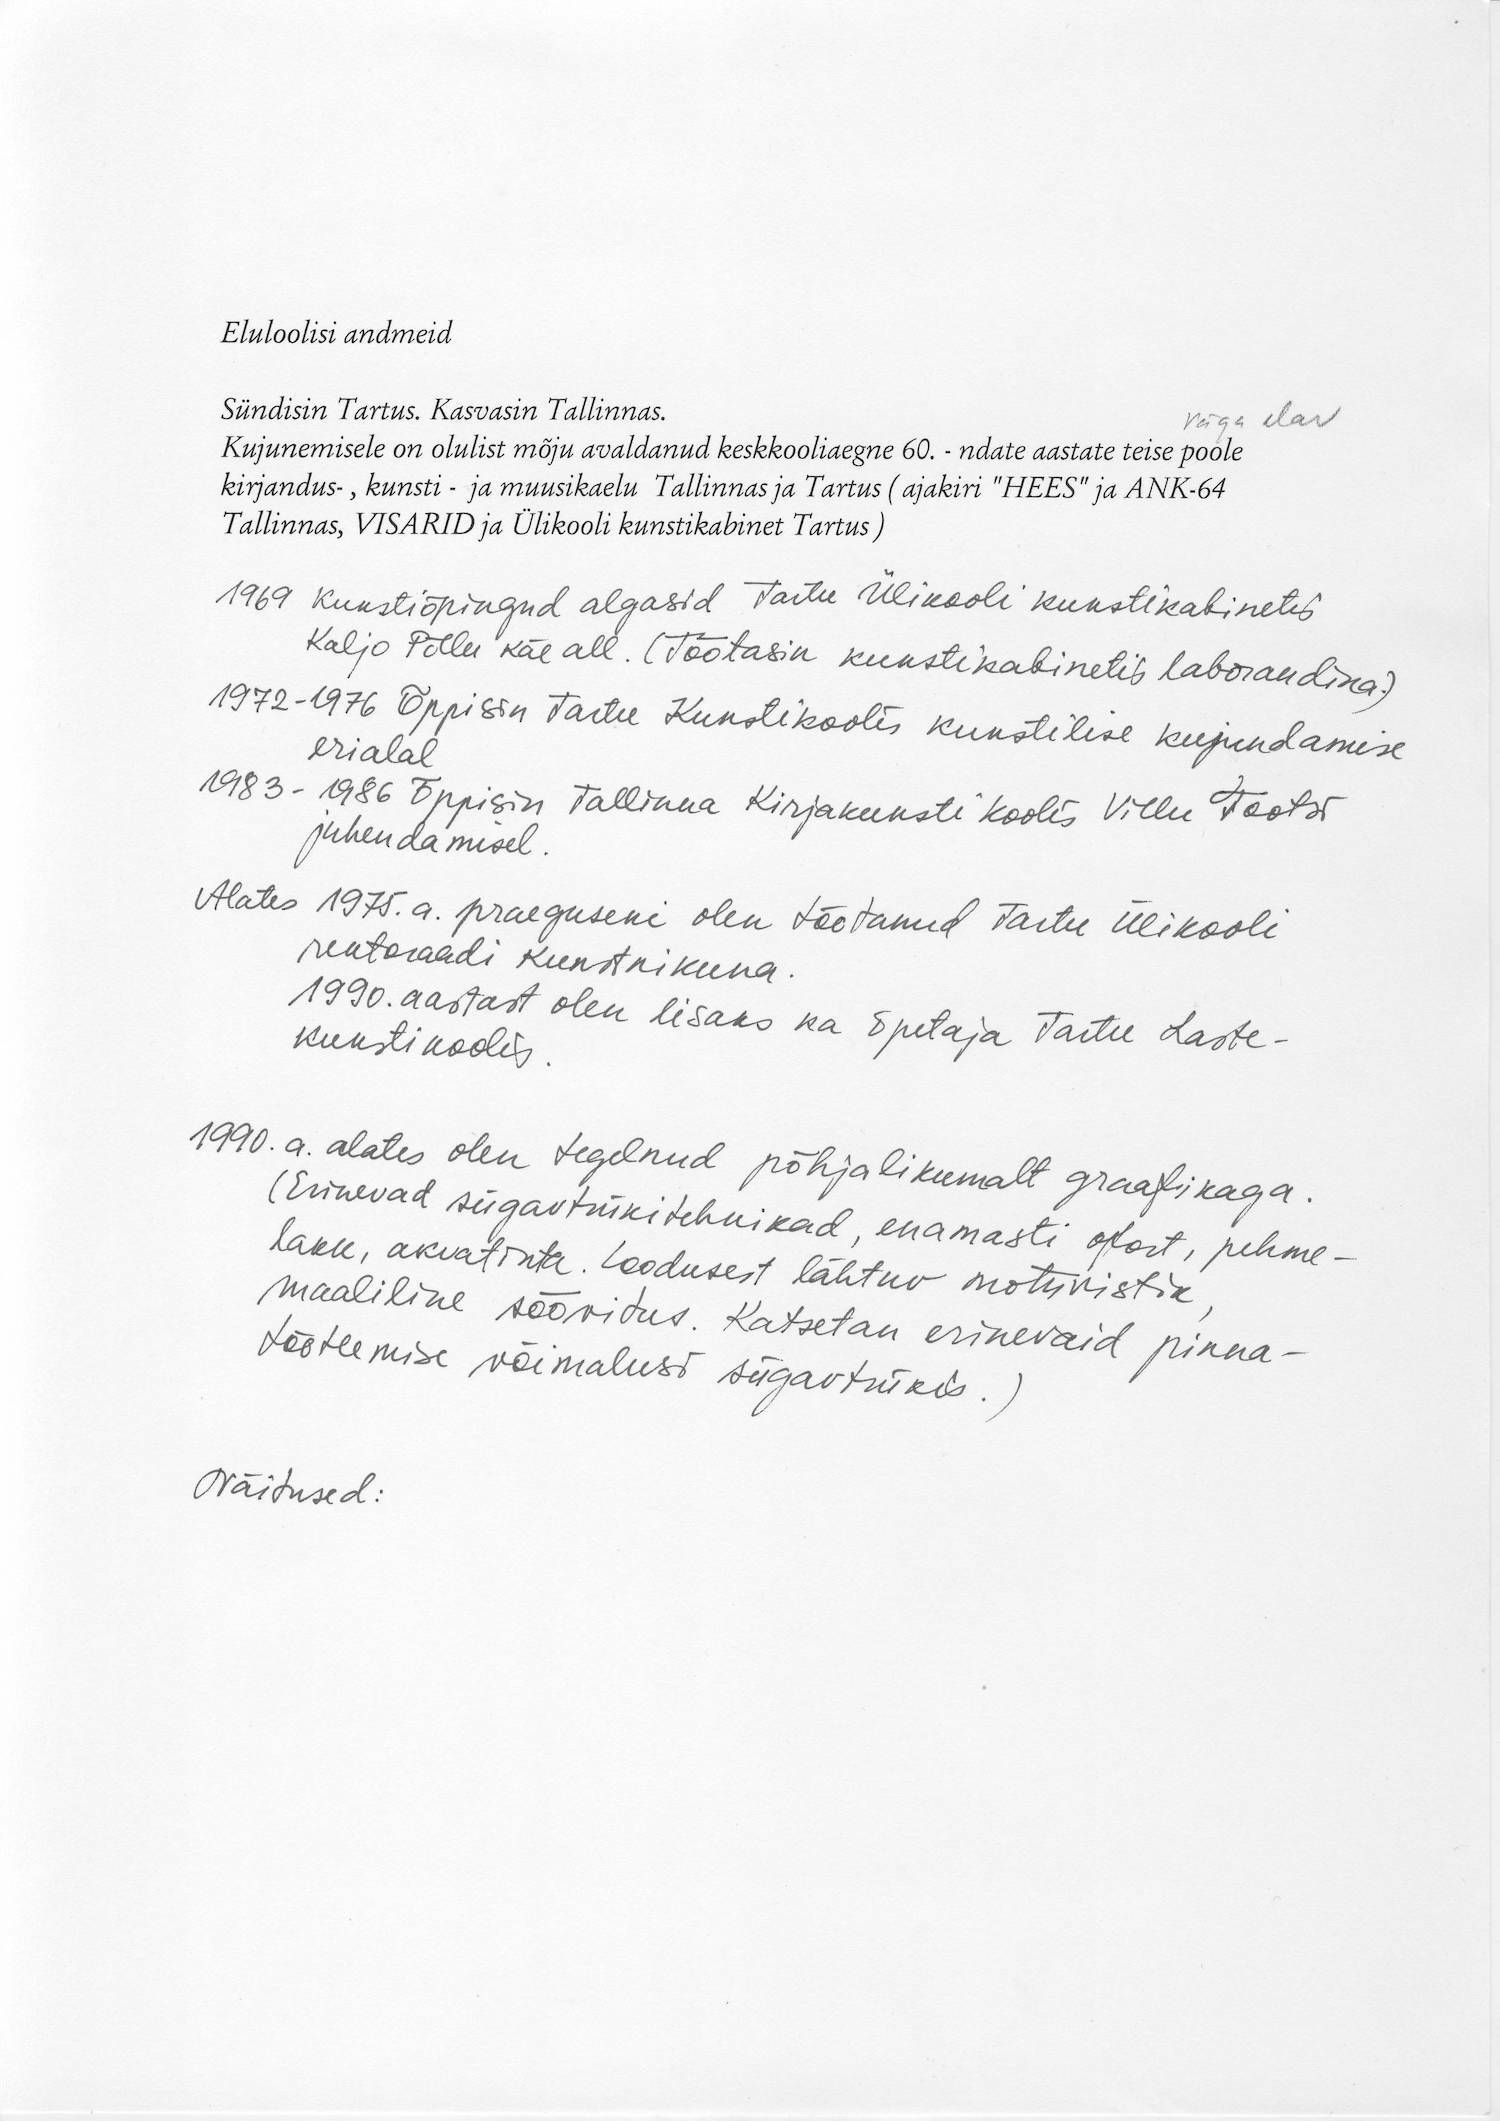 Eluloolisi andmeid
Sündisin Tartus. Kasvasin Tallinnas.
väga elav
Kujunemisele on olulist mõju avaldanud keskkooliaegne 60. - ndate aastate teise poole
kirjandus- , kunsti - ja muusikaelu Tallinnas ja Tartus ( ajakiri "HEES" ja ANK-64
Tallinnas, VISARID ja Ülikooli kunstikabinet Tartus )
1969 Kunstiõpingud algasid Tartu Ülikooli kunstikabinetis
Kaljo Põllu käe all. (Töötasin kunstikabinetis laborandina.)
1972-1976 Õppisin Tartu Kunstikoolis kunstilise kujundamise
erialal
1983 - 1986 Õppisin Tallinna Kirjakunsti koolis Villu Tootsi
juhendamisel.
Alates 1975. a. praeguseni olen töötanud Tartu Ülikooli
rektoraadi kunstnikuna.
1990. aastast olen lisaks ka õpetaja Tartu Laste-
kunstikoolis.
1990. a. alates olen tegelnud põhjalikumalt graafikaga.
(Erinevad sügavtrükitehnikad, enamasti ofort, pehme-
lakk, akvatinta. Loodusest lähtuv motiivistik,
maaliline söövitus. Katsetan erinevaid pinna-
töötlemise võimalusi sügavtrükis.)
Näitused: